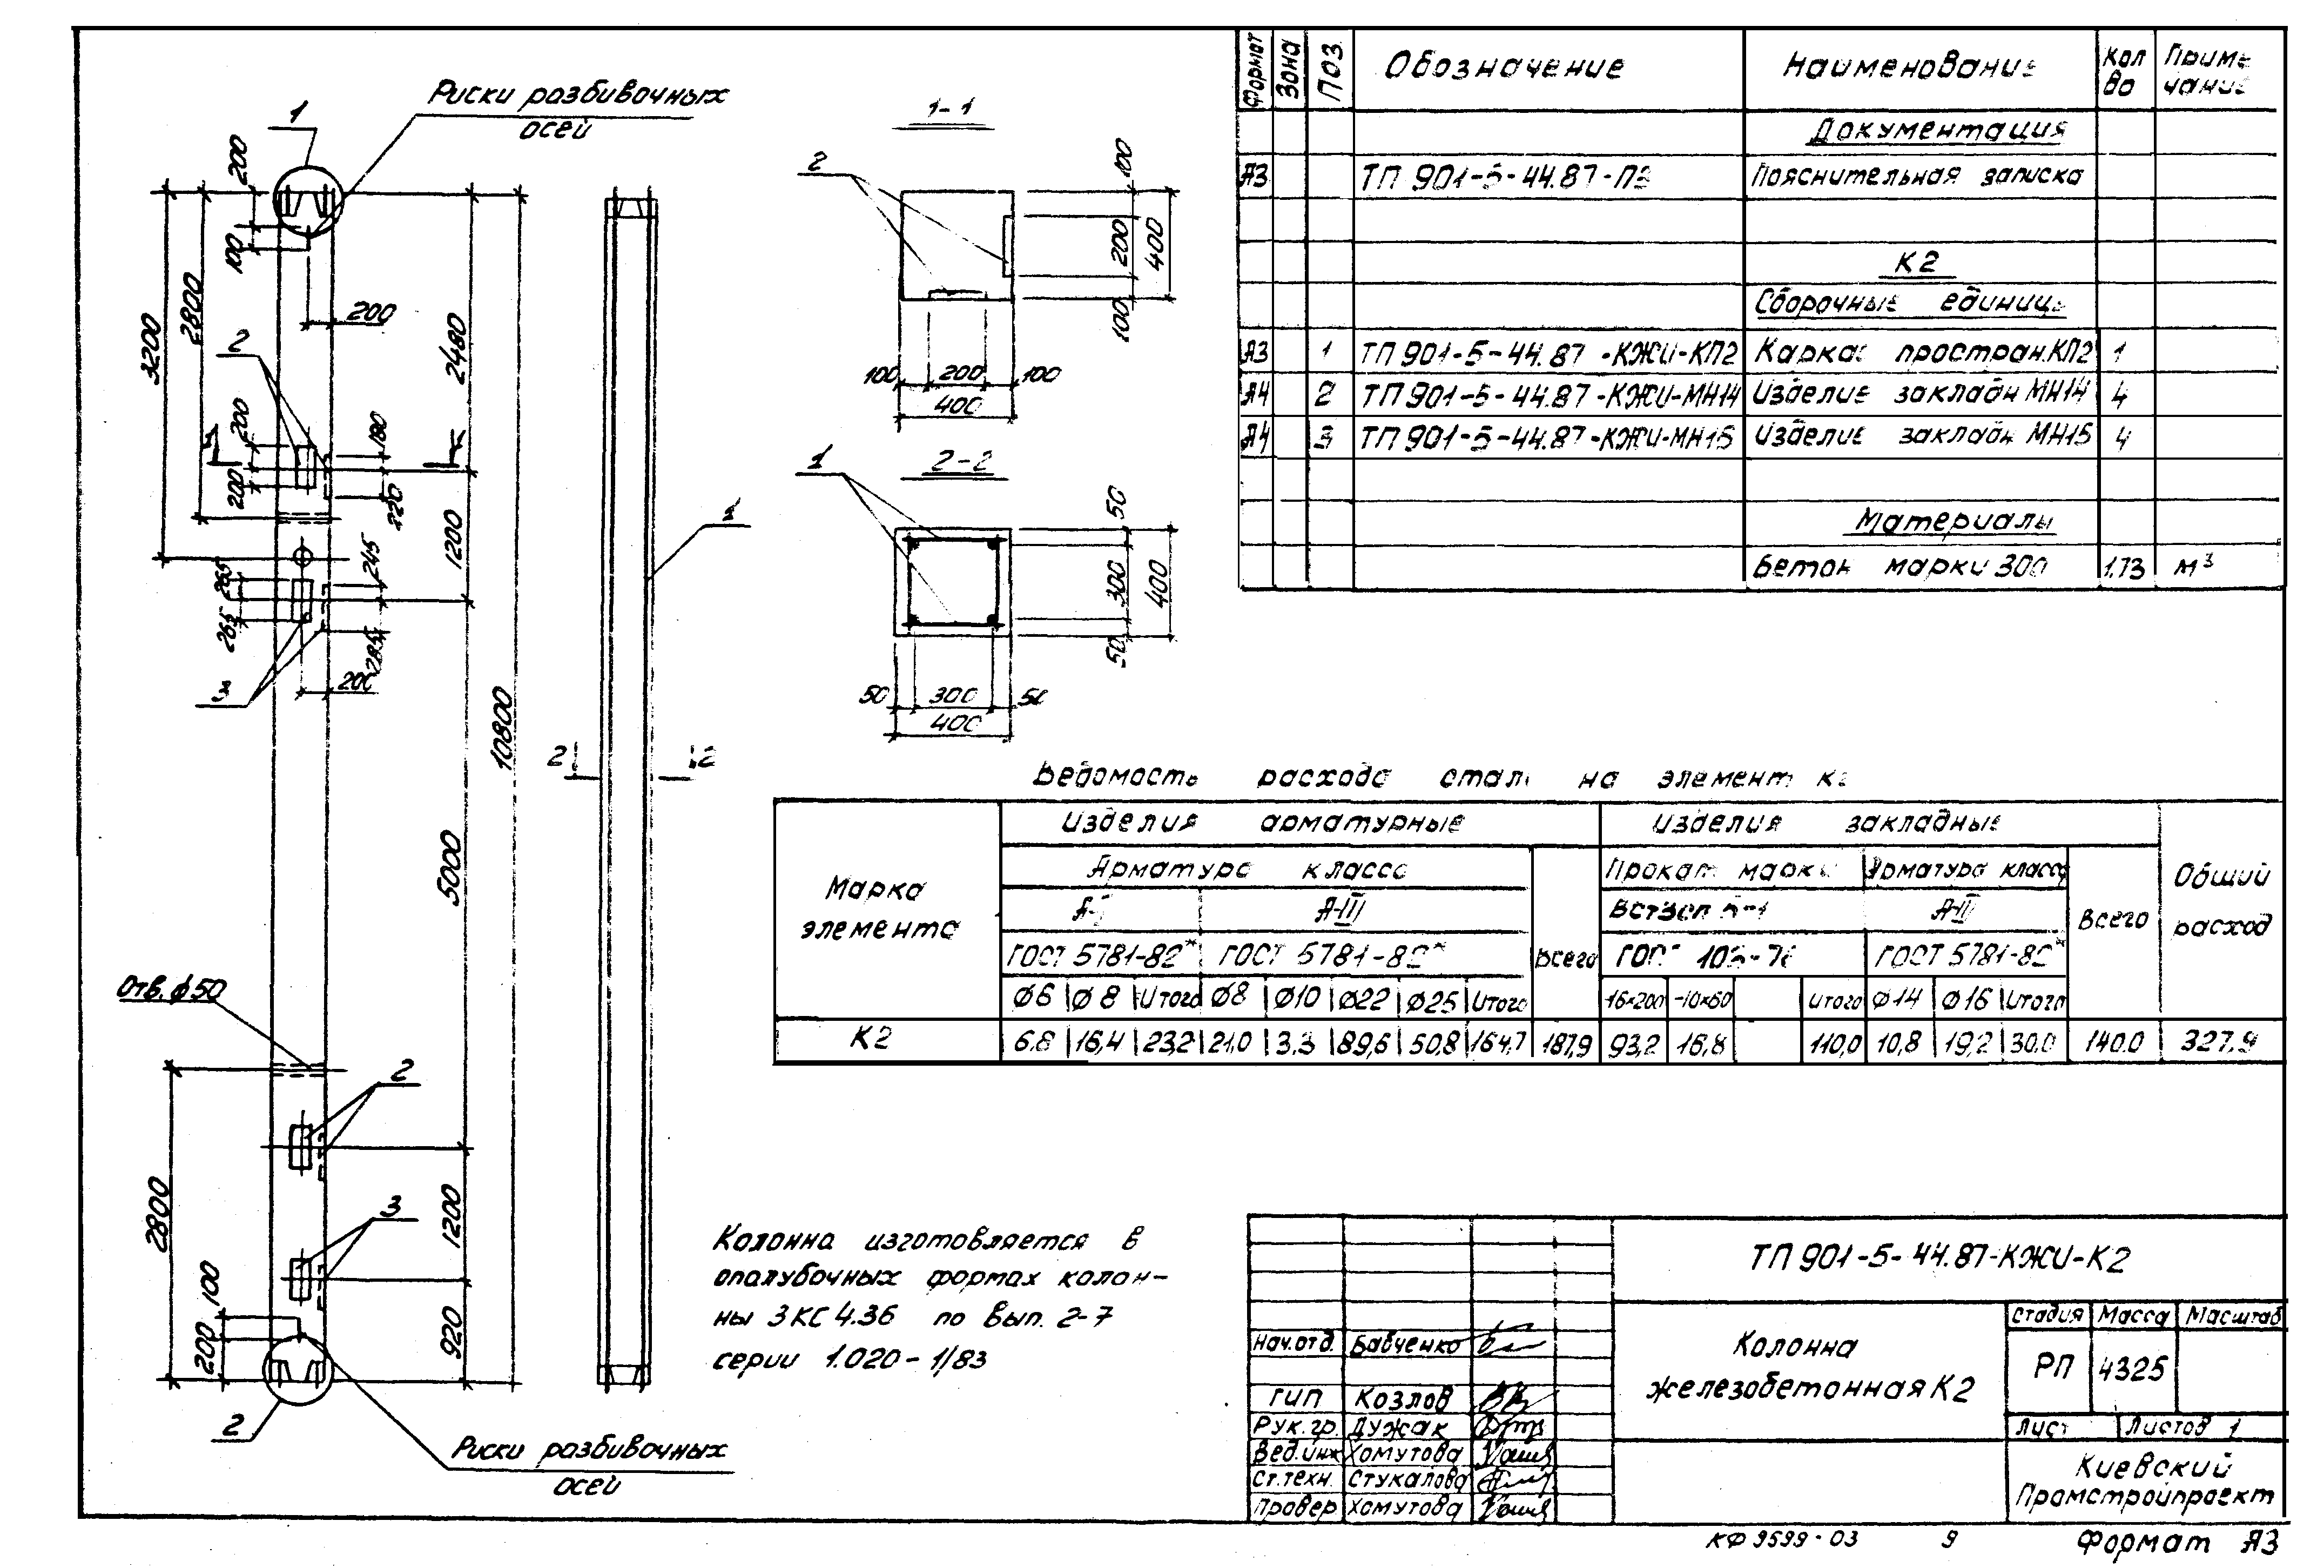 Риски разбивочных
осей
1
200
100
3200
2800
200
2480
2
200
200
180
220
1
1
1200
265
265
245
285
200
3
10800
5000
Отв. ф50
2800
2
3
1200
920
100
200
2
Риски разбивочных
осей
1
2
2
1-1
2
100
200
100
400
100 200 100
400
2-2
1
50
300
50
400
50 300 50
400
Формат Зона Поз. Обозначение Наименование Кол во Приме чание
Документация
А3 ТП 901-5-44.87-ПЗ Пояснительная записка
К2
Сборочные единицы
А3 1 ТП 901-5-44.87-КЖИ-КП2 Каркас простран. КП2 1
А4 2 ТП 901-5-44.87-КЖИ-МН14 Изделие закладн МН14 4
А4 3 ТП 901-5-44.87-КЖИ-МН15 Изделие закладн МН15 4
Материалы
Бетон марки 300 1.73 м³
Ведомость расхода стали на элемент К2
Марка элемента
Изделия арматурные Изделия закладные
Общий расход
Арматура класса Всего Прокат марки Арматура класса Всего
А-I А-III ВСт3сп5-1 А-III
ГОСТ 5781-82* ГОСТ 5781-82* ГОСТ 103-76 ГОСТ 5781-82*
Ø6 Ø8 Итого Ø8 Ø10 Ø22 Ø25 Итого 16×200 -10×60 Итого Ф14 Ø16 Итого
К2 6.8 16,4 23,2 21,0 3.3 89,6 50,8 164,7 187,9 93,2 16,8 110,0 10,8 19,2 30.0 140.0 327.9
Колонна изготовляется в
опалубочных формах колон-
ны 3КС 4.36 по вып. 2-7
серии 1.020-1/83
ТП 901-5-44.87-КЖИ-К2
Колонна
железобетонная К2
Стадия Масса Масштаб
РП 4325
Лист Листов 1
Киевский
Промстройпроект
Нач.отд. Бабченко
ГИП Козлов
Рук.гр. Дужак
Вед.инж Хомутова
Ст.техн. Стукалова
Провер Хомутова
КФ 9599-03 9 Формат А3